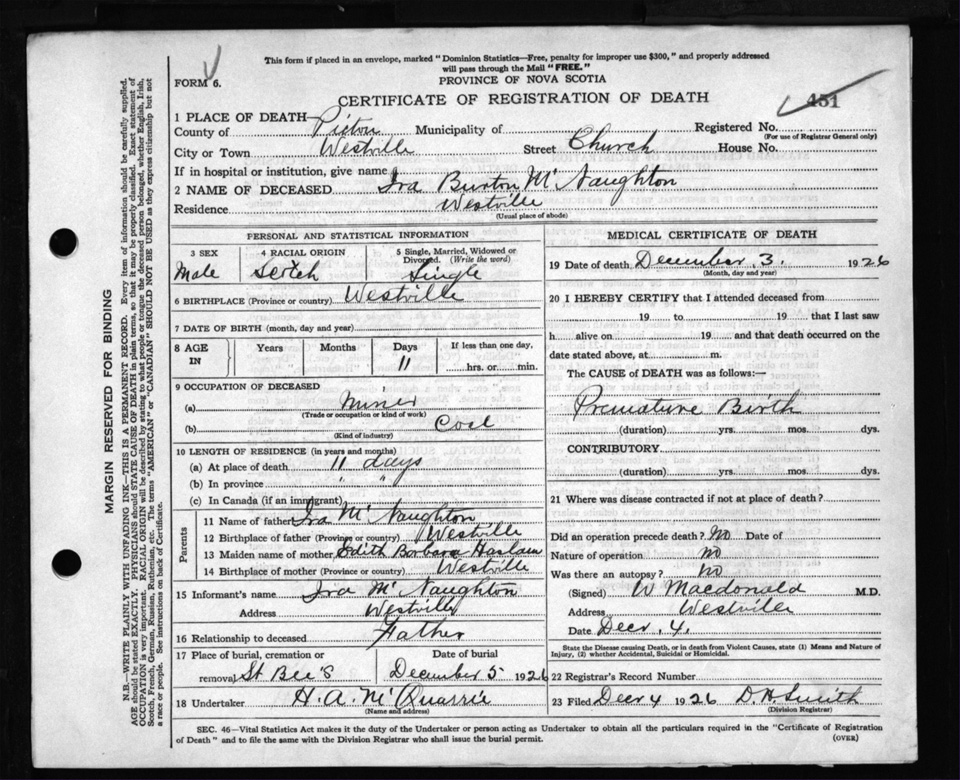 This form if placed in an envelope, marked "Dominion Statistics—Free, penalty for improper use $300," and properly addressed
will pass through the Mail "FREE."
FORM 6.
PROVINCE OF NOVA SCOTIA
CERTIFICATE OF REGISTRATION OF DEATH
451
1 PLACE OF DEATH
County of Pictou Municipality of Registered No.
(For use of Registrar General only)
City or Town Westville Street Church House No.
If in hospital or institution, give name
2 NAME OF DECEASED Ira Burton McNaughton
Residence Westville
(Usual place of abode)
PERSONAL AND STATISTICAL INFORMATION
3 SEX Male
4 RACIAL ORIGIN Scotch
5 Single, Married, Widowed or Divorced. (Write the word) Single
6 BIRTHPLACE (Province or country) Westville
7 DATE OF BIRTH (month, day and year)
8 AGE IN Years Months Days 11 If less than one day, hrs. or min.
9 OCCUPATION OF DECEASED
(a) Miner
(Trade or occupation or kind of work)
(b) Coal
(Kind of industry)
10 LENGTH OF RESIDENCE (in years and months)
(a) At place of death 11 days
(b) In province " "
(c) In Canada (if an immigrant)
Parents
11 Name of father Ira McNaughton
12 Birthplace of father (Province or country) Westville
13 Maiden name of mother Edith Barbara Haslam
14 Birthplace of mother (Province or country) Westville
15 Informant's name Ira McNaughton
Address Westville
16 Relationship to deceased Father
17 Place of burial, cremation or removal St Bee's
Date of burial December 5 1926
18 Undertaker H. A. McQuarrie
(Name and address)
MEDICAL CERTIFICATE OF DEATH
19 Date of death December 3. 1926
(Month, day and year)
20 I HEREBY CERTIFY that I attended deceased from
19 to 19 that I last saw
h alive on 19 and that death occurred on the
date stated above, at m.
The CAUSE of DEATH was as follows:—
Premature Birth
(duration) yrs. mos. dys.
CONTRIBUTORY.
(duration) yrs. mos. dys.
21 Where was disease contracted if not at place of death?
Did an operation precede death? No Date of
Nature of operation no
Was there an autopsy? no
(Signed) W Macdonald M.D.
Address Westville
Date Decr. 4.
State the Disease causing Death, or in death from Violent Causes, state (1) Means and Nature of
Injury, (2) whether Accidental, Suicidal or Homicidal.
22 Registrar's Record Number
23 Filed Decr 4 1926 D. H. Smith
(Division Registrar)
SEC. 46—Vital Statistics Act makes it the duty of the Undertaker or person acting as Undertaker to obtain all the particulars required in the "Certificate of Registration
of Death" and to file the same with the Division Registrar who shall issue the burial permit.
(OVER)
MARGIN RESERVED FOR BINDING
N.B.—WRITE PLAINLY WITH UNFADING INK—THIS IS A PERMANENT RECORD. Every item of information should be carefully supplied.
AGE should be stated EXACTLY. PHYSICIANS should STATE CAUSE OF DEATH in plain terms, so that it may be properly classified. Exact statement of
OCCUPATION is very important. RACIAL ORIGIN will be described by stating to what people or tongue the deceased person belonged, whether English, Irish,
Scotch, French, German, Russian, Ruthenian, etc. The terms "AMERICAN" or "CANADIAN" SHOULD NOT BE USED as they express citizenship but not
a race or people. See instructions on back of Certificate.